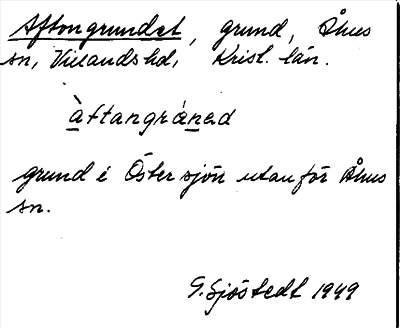 Aftongrundet, grund, Åhus
sn, Villands hd, Krist. län.
àftangránad
grund i Östersjön utanför Åhus
sn.
G. Sjöstedt 1949